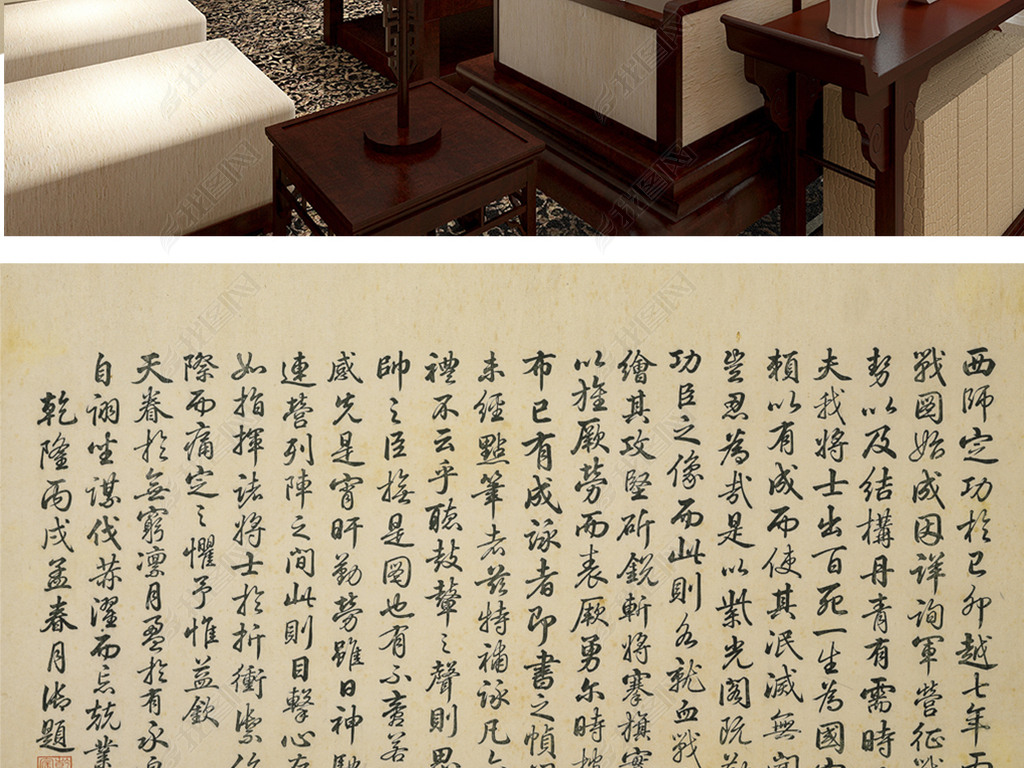 西師定功於己卯越七年
戰圖始成因詳詢軍營征
勢以及結構丹青有需時
夫我將士出百死一生為國
賴以有成而使其泯滅無
豈忍為哉是以紫光閣既
功臣之像而此則各就血戰
繪其攻堅斫銳斬將搴旗
以旌厥勞而表厥勇尔時
布已有成詠者即書之幀
未經點筆者茲特補詠凡
禮不云乎聽鼓鼙之聲則思
帥之臣撫是圖也有不啻若
感先是宵旰勤勞雖日神
連營列陣之間此則目擊心
如指揮諸將士於折衝禦
際而痛定之懼予惟益欽
天眷於無窮凜月盈於有永
自詡坐謀伐赫濯而忘兢業
乾隆丙戌孟春月御題